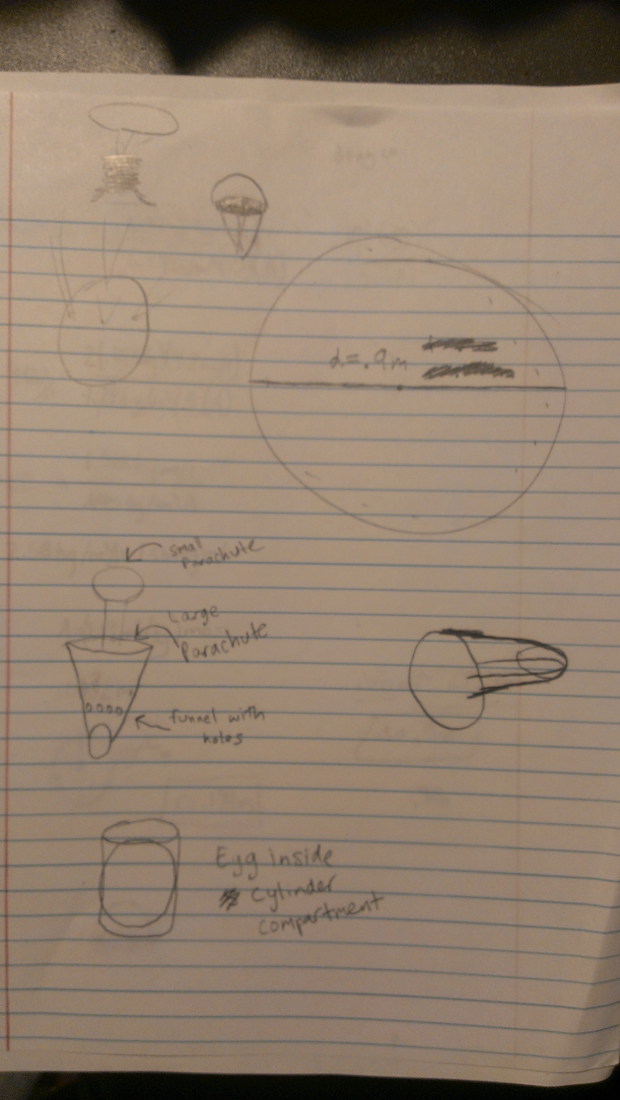 d=.9m
small
Parachute
Large
Parachute
funnel with
holes
Egg inside
cylinder
compartment